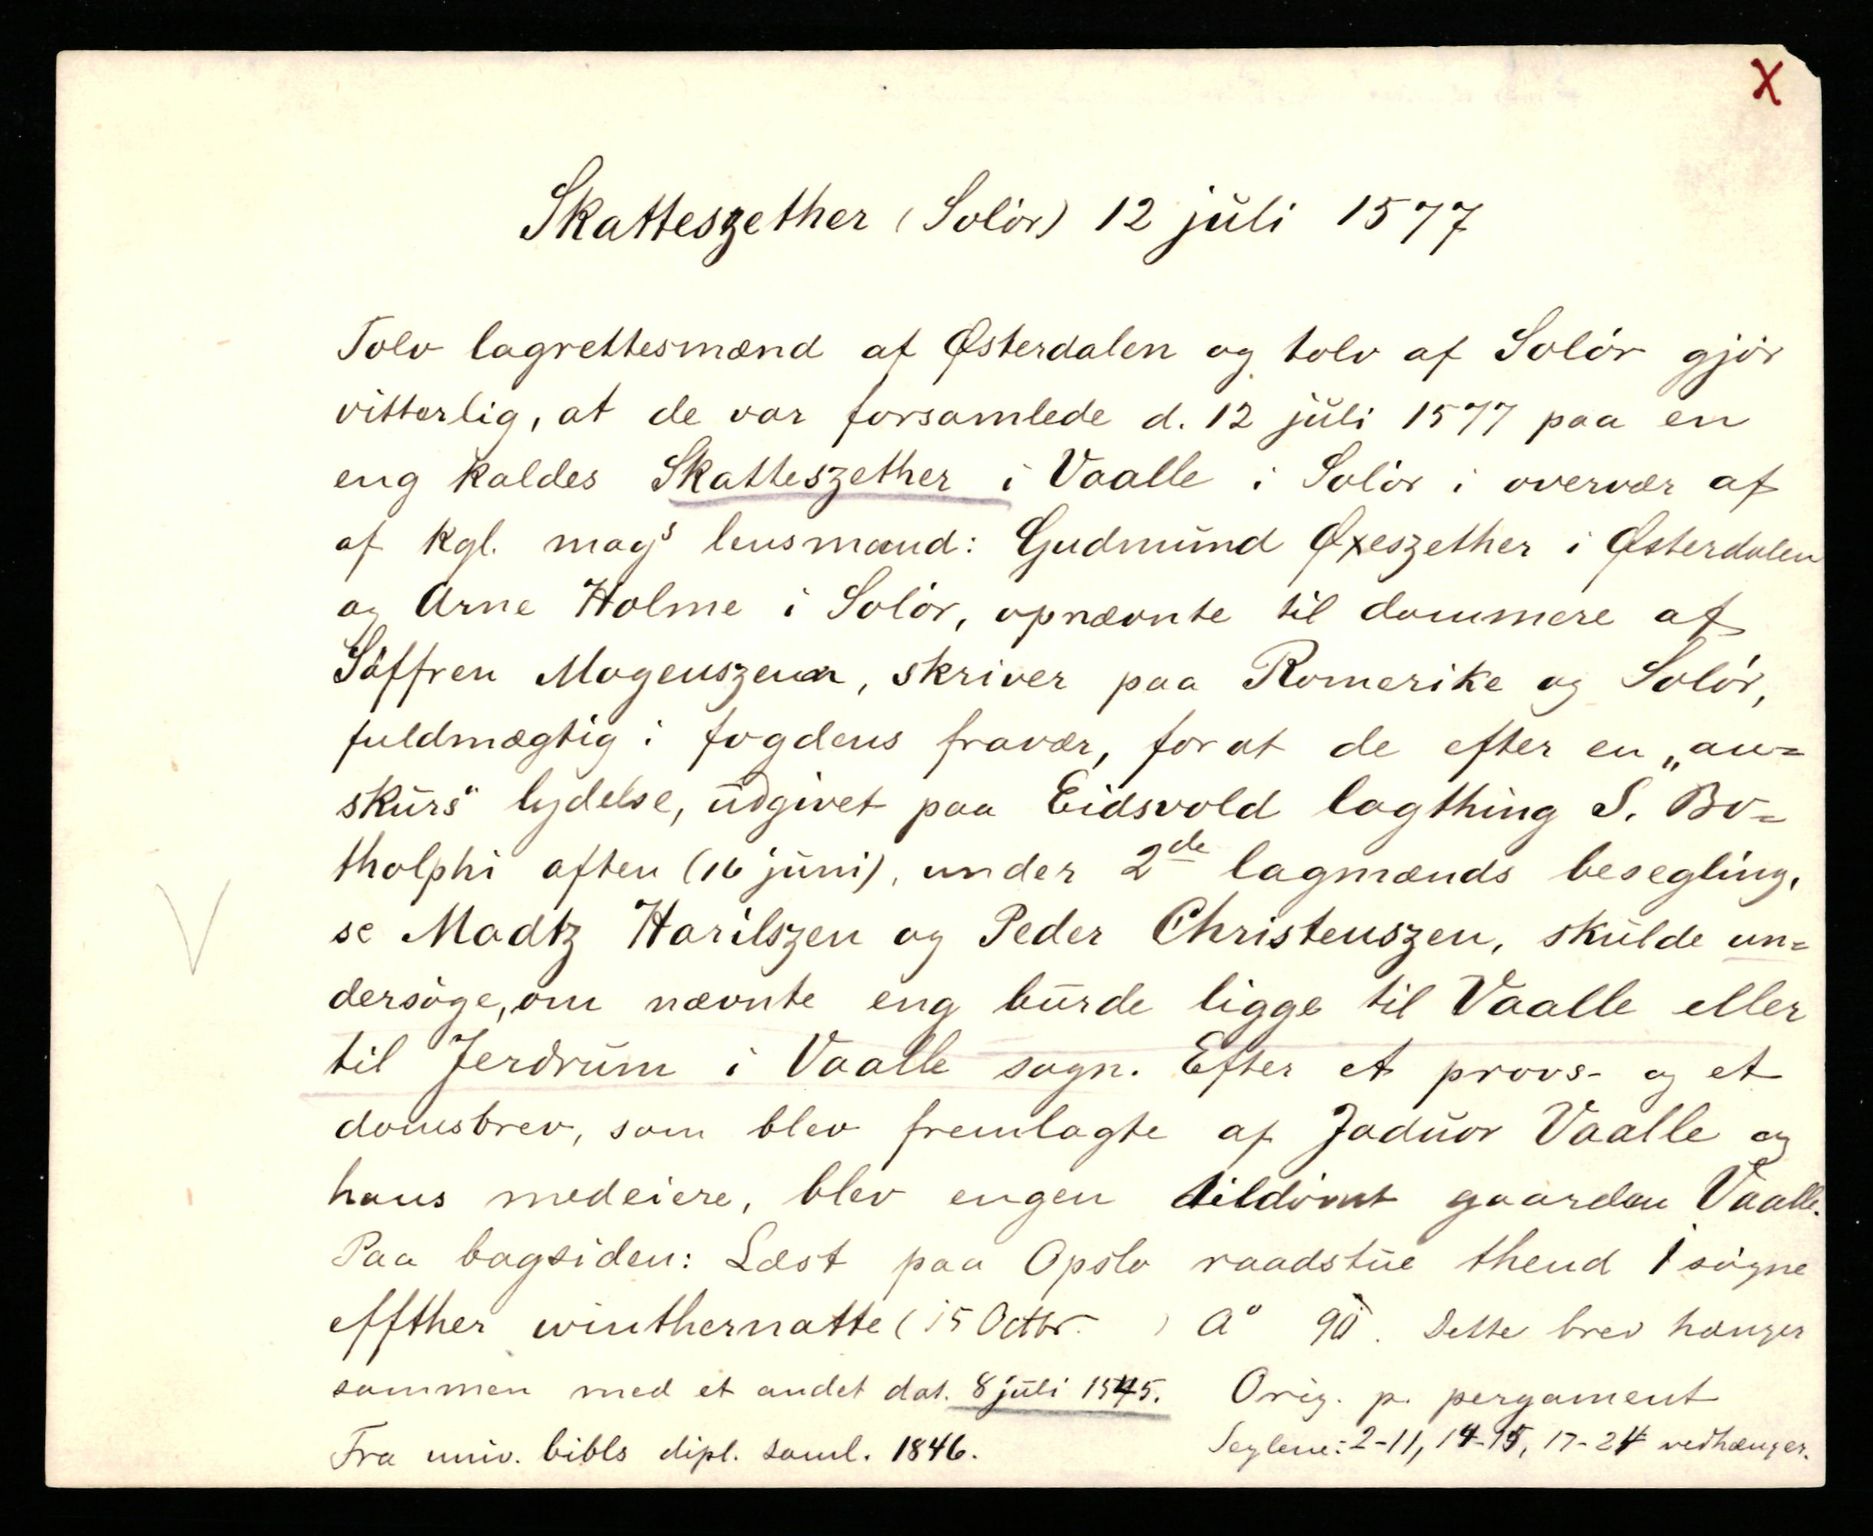 X
Skatteszether (Solør) 12 juli 1577
Tolv lagrettesmænd af Østerdalen og tolv af Solør gjør
vitterlig, at de var forsamlede d. 12 juli 1577 paa en
eng kaldes Skatteszether i Vaalle i Solør i overvær af
af kgl. mags lensmænd: Gudmund Øxeszether i Østerdalen
og Arne Holme i Solør, opnævnte til dommere af
Søffren Mogenszenn, skriver paa Romerike og Solør,
fuldmægtig i fogdens fravær, forat de efter en „an=
skurs“ lydelse, udgivet paa Eidsvold lagthing S. Bo=
tholphi aften (16 juni), under 2de lagmænds besegling,
se Madtz Harilszen og Peder Christenszen, skulde un=
dersøge, om nævnte eng burde ligge til Vaalle eller
til Jerdrum i Vaalle sogn. Efter et provs- og et
domsbrev, som blev fremlagte af Joduor Vaalle og
hans medeiere, blev engen tildømt gaarden Vaalle.
Paa bagsiden: Læst paa Opslo raadstue thend 1 søgne
effther winthernatte (15 Octbr. ) Aº 90. Dette brev hænger
sammen med et andet dat. 8 juli 1545. Orig. p. pergament
Fra univ. bibls dipl. saml. 1846. Seglene: 2-11, 14-15, 17-24 vedhænger.